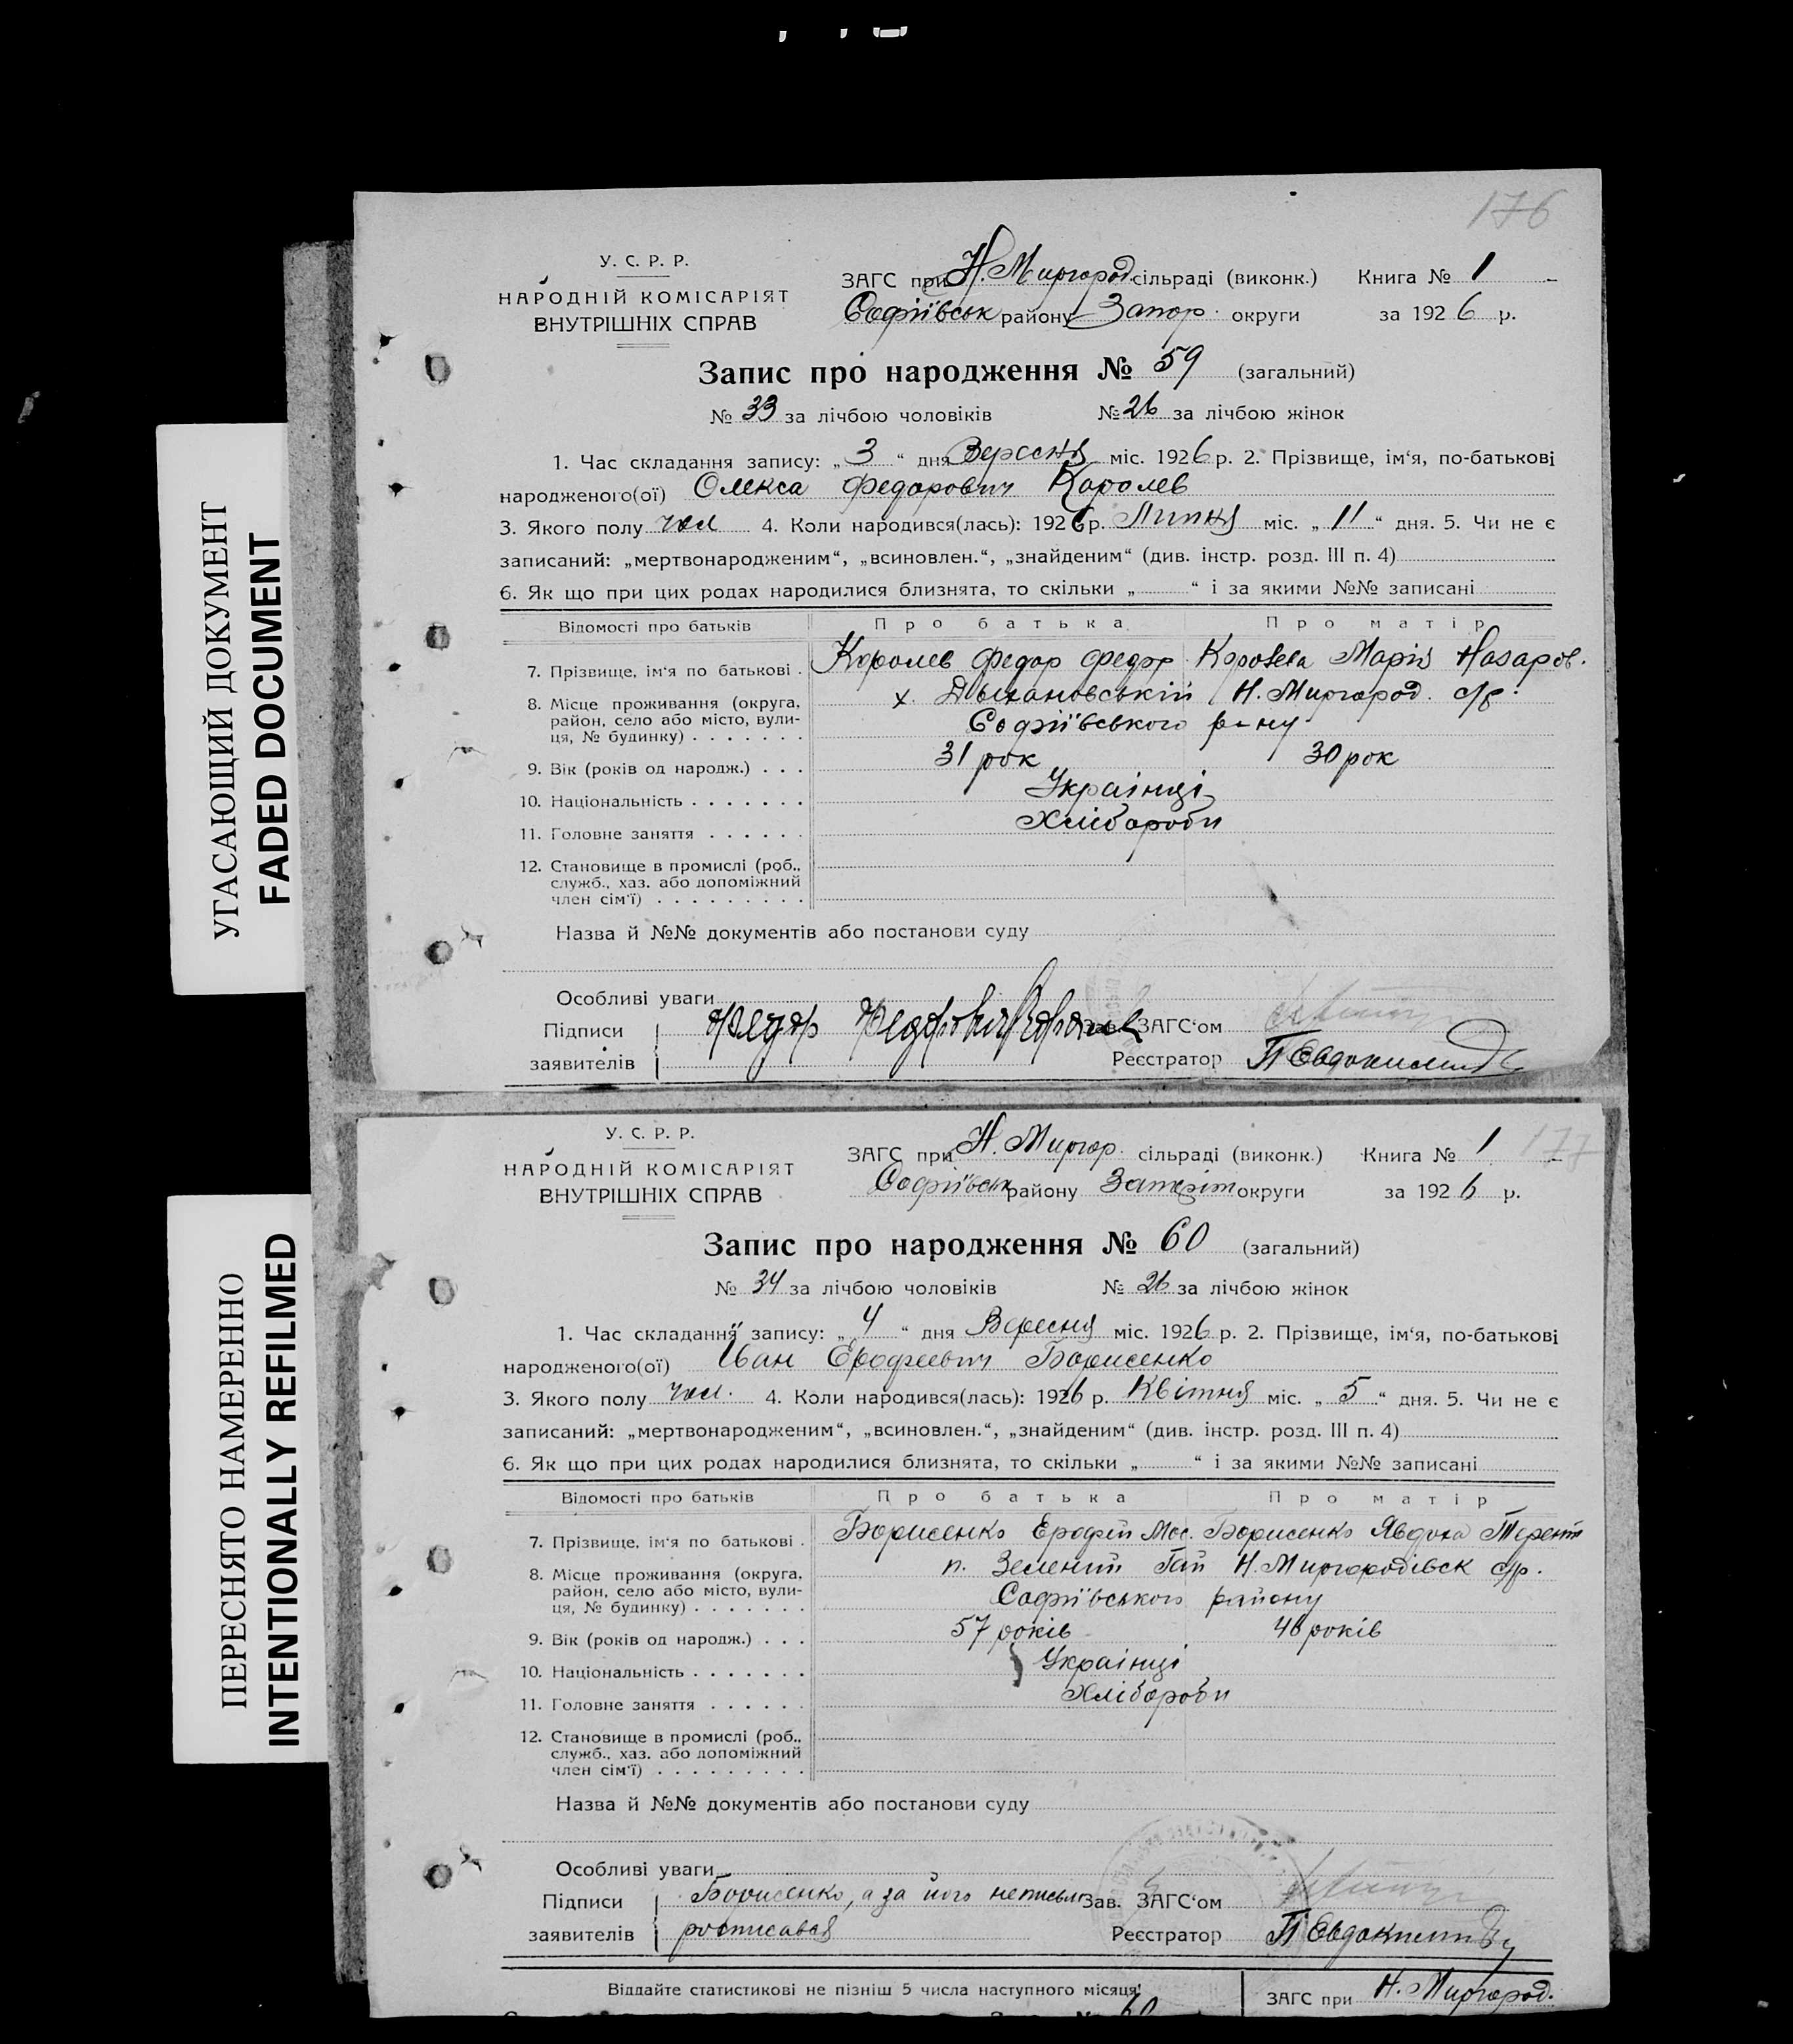 176
У. С. Р. Р.
НАРОДНІЙ КОМІСАРІЯТ
ВНУТРІШНІХ СПРАВ
ЗАГС при Н. Миргород. сільраді (виконк.) Книга № 1
Софіївськ району Запор. округи за 1926 р.
Запис про народження № 59 (загальний)
№ 33 за лічбою чоловіків № 26 за лічбою жінок
1. Час складання запису: „3“ дня Вересня міс. 1926 р. 2. Прізвище, ім‘я, по-батькові
народженого(ої) Олекса Федорович Королев
3. Якого полу чол 4. Коли народився(лась): 1926 р. Липня міс. „11“ дня. 5. Чи не є
записаний: „мертвонародженим“, „всиновлен.“, „знайденим“ (див. інстр. розд. III п. 4)
6. Як що при цих родах народилися близнята, то скільки „ “ і за якими №№ записані
Відомості про батьків Про батька Про матір
7. Прізвище, ім‘я по батькові . Королев Федор Федор. Королева Марія Назаров.
8. Місце проживання (округа, х. Н. Миргород. с/р.
район, село або місто, вули- Софіївського р-ну
ця, № будинку) . . . . . . .
9. Вік (років од народж.) . . . 31 рок 30 рок
10. Національність . . . . . . . Українці
11. Головне заняття . . . . . . Хлібороби
12. Становище в промислі (роб.,
служб., хаз. або допоміжний
член сім‘ї) . . . . . . . . .
Назва й №№ документів або постанови суду
Особливі уваги
Підписи Федор Федорович Королев Зав. ЗАГС‘ом
заявителів Реєстратор П Евдокимов
У. С. Р. Р.
НАРОДНІЙ КОМІСАРІЯТ
ВНУТРІШНІХ СПРАВ
177
ЗАГС при Н. Миргор. сільраді (виконк.) Книга № 1
Софіївськ району округи за 1926 р.
Запис про народження № 60 (загальний)
№ 34 за лічбою чоловіків № 26 за лічбою жінок
1. Час складання запису: „4“ дня Вересня міс. 1926 р. 2. Прізвище, ім‘я, по-батькові
народженого(ої) Іван Ерофеевич Борисенко
3. Якого полу чол. 4. Коли народився(лась): 1926 р. Квітня міс. „5“ дня. 5. Чи не є
записаний: „мертвонародженим“, „всиновлен.“, „знайденим“ (див. інстр. розд. III п. 4)
6. Як що при цих родах народилися близнята, то скільки „ “ і за якими №№ записані
Відомості про батьків Про батька Про матір
7. Прізвище, ім‘я по батькові . Борисенко Ерофей Мос. Борисенко Явдоха Терент
8. Місце проживання (округа, п. Зелений Гай Н. Миргородівськ с/р.
район, село або місто, вули- Софіївського району
ця, № будинку) . . . . . . .
9. Вік (років од народж.) . . . 57 років 48 років
10. Національність . . . . . . . Українці
11. Головне заняття . . . . . . Хлібороби
12. Становище в промислі (роб.,
служб., хаз. або допоміжний
член сім‘ї) . . . . . . . . .
Назва й №№ документів або постанови суду
Особливі уваги
Підписи Борисенко, а за його неписьм Зав. ЗАГС‘ом
заявителів росписався Реєстратор П Евдокимов
Віддайте статистикові не пізніш 5 числа наступного місяця!
ЗАГС при Н. Миргород.
60
УГАСАЮЩИЙ ДОКУМЕНТ
FADED DOCUMENT
ПЕРЕСНЯТО НАМЕРЕННО
INTENTIONALLY REFILMED